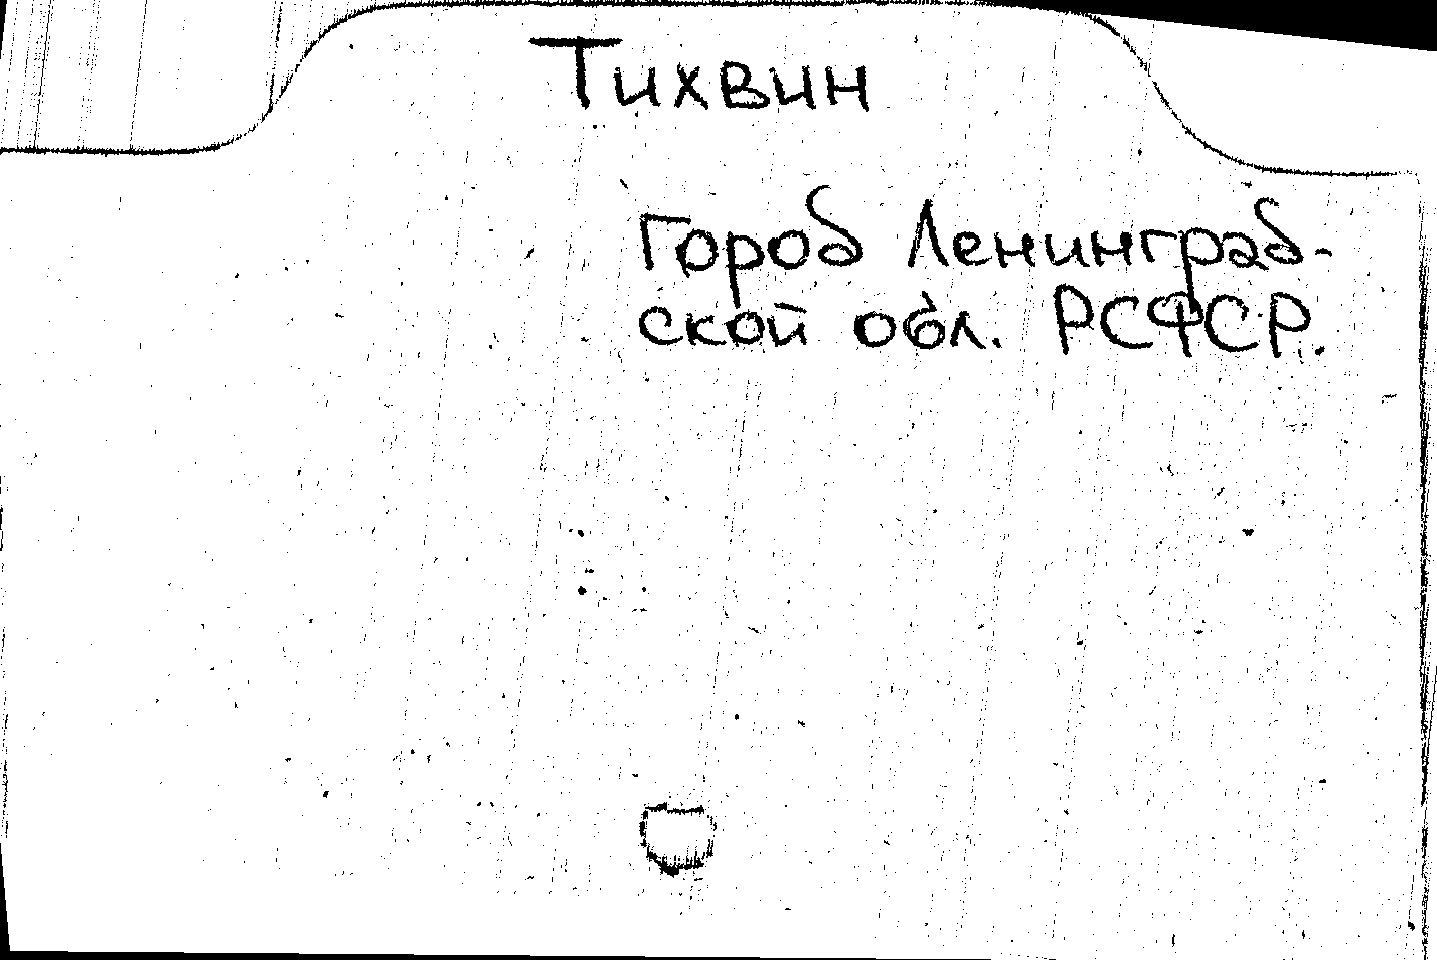 Тихвин
Город Ленинград-
ской обл. РСФСР.